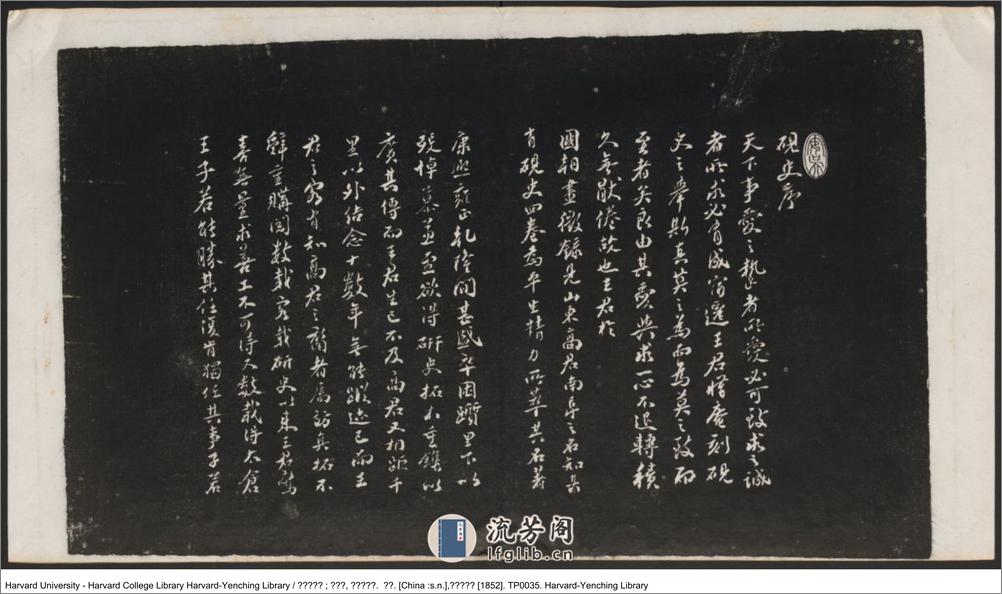 硯史序
天下事愛之摯者所愛必可致求之誠
者所求必有成宿遷王君惜庵刻硯
史之舉斯真莫之為而為莫之致而
至者矣良由其愛與求一心不退轉積
久無厭倦故也王君於
國朝畫徵錄見山東高君南阜之名知其
有硯史四卷為平生精力所萃其石著
康熙雍正乾隆間甚盛卒困躓里下以
歿悼慕並至欲得硏史拓本重鐫以
廣其傳而王君生已不及高君又相距千
里以外結念十數年無能蹤迹已而王
君之客有知高君之裔者屬訪真拓不
辭重購閱數載客載硏史以來王君驚
喜無量求善工不可得又數載得太倉
王子若能勝其任淺肯獨任其事子若
流芳阁
lfglib.cn
Harvard University - Harvard College Library Harvard-Yenching Library / ????? ; ???, ?????. ??. [China :s.n.],????? [1852]. TP0035. Harvard-Yenching Library